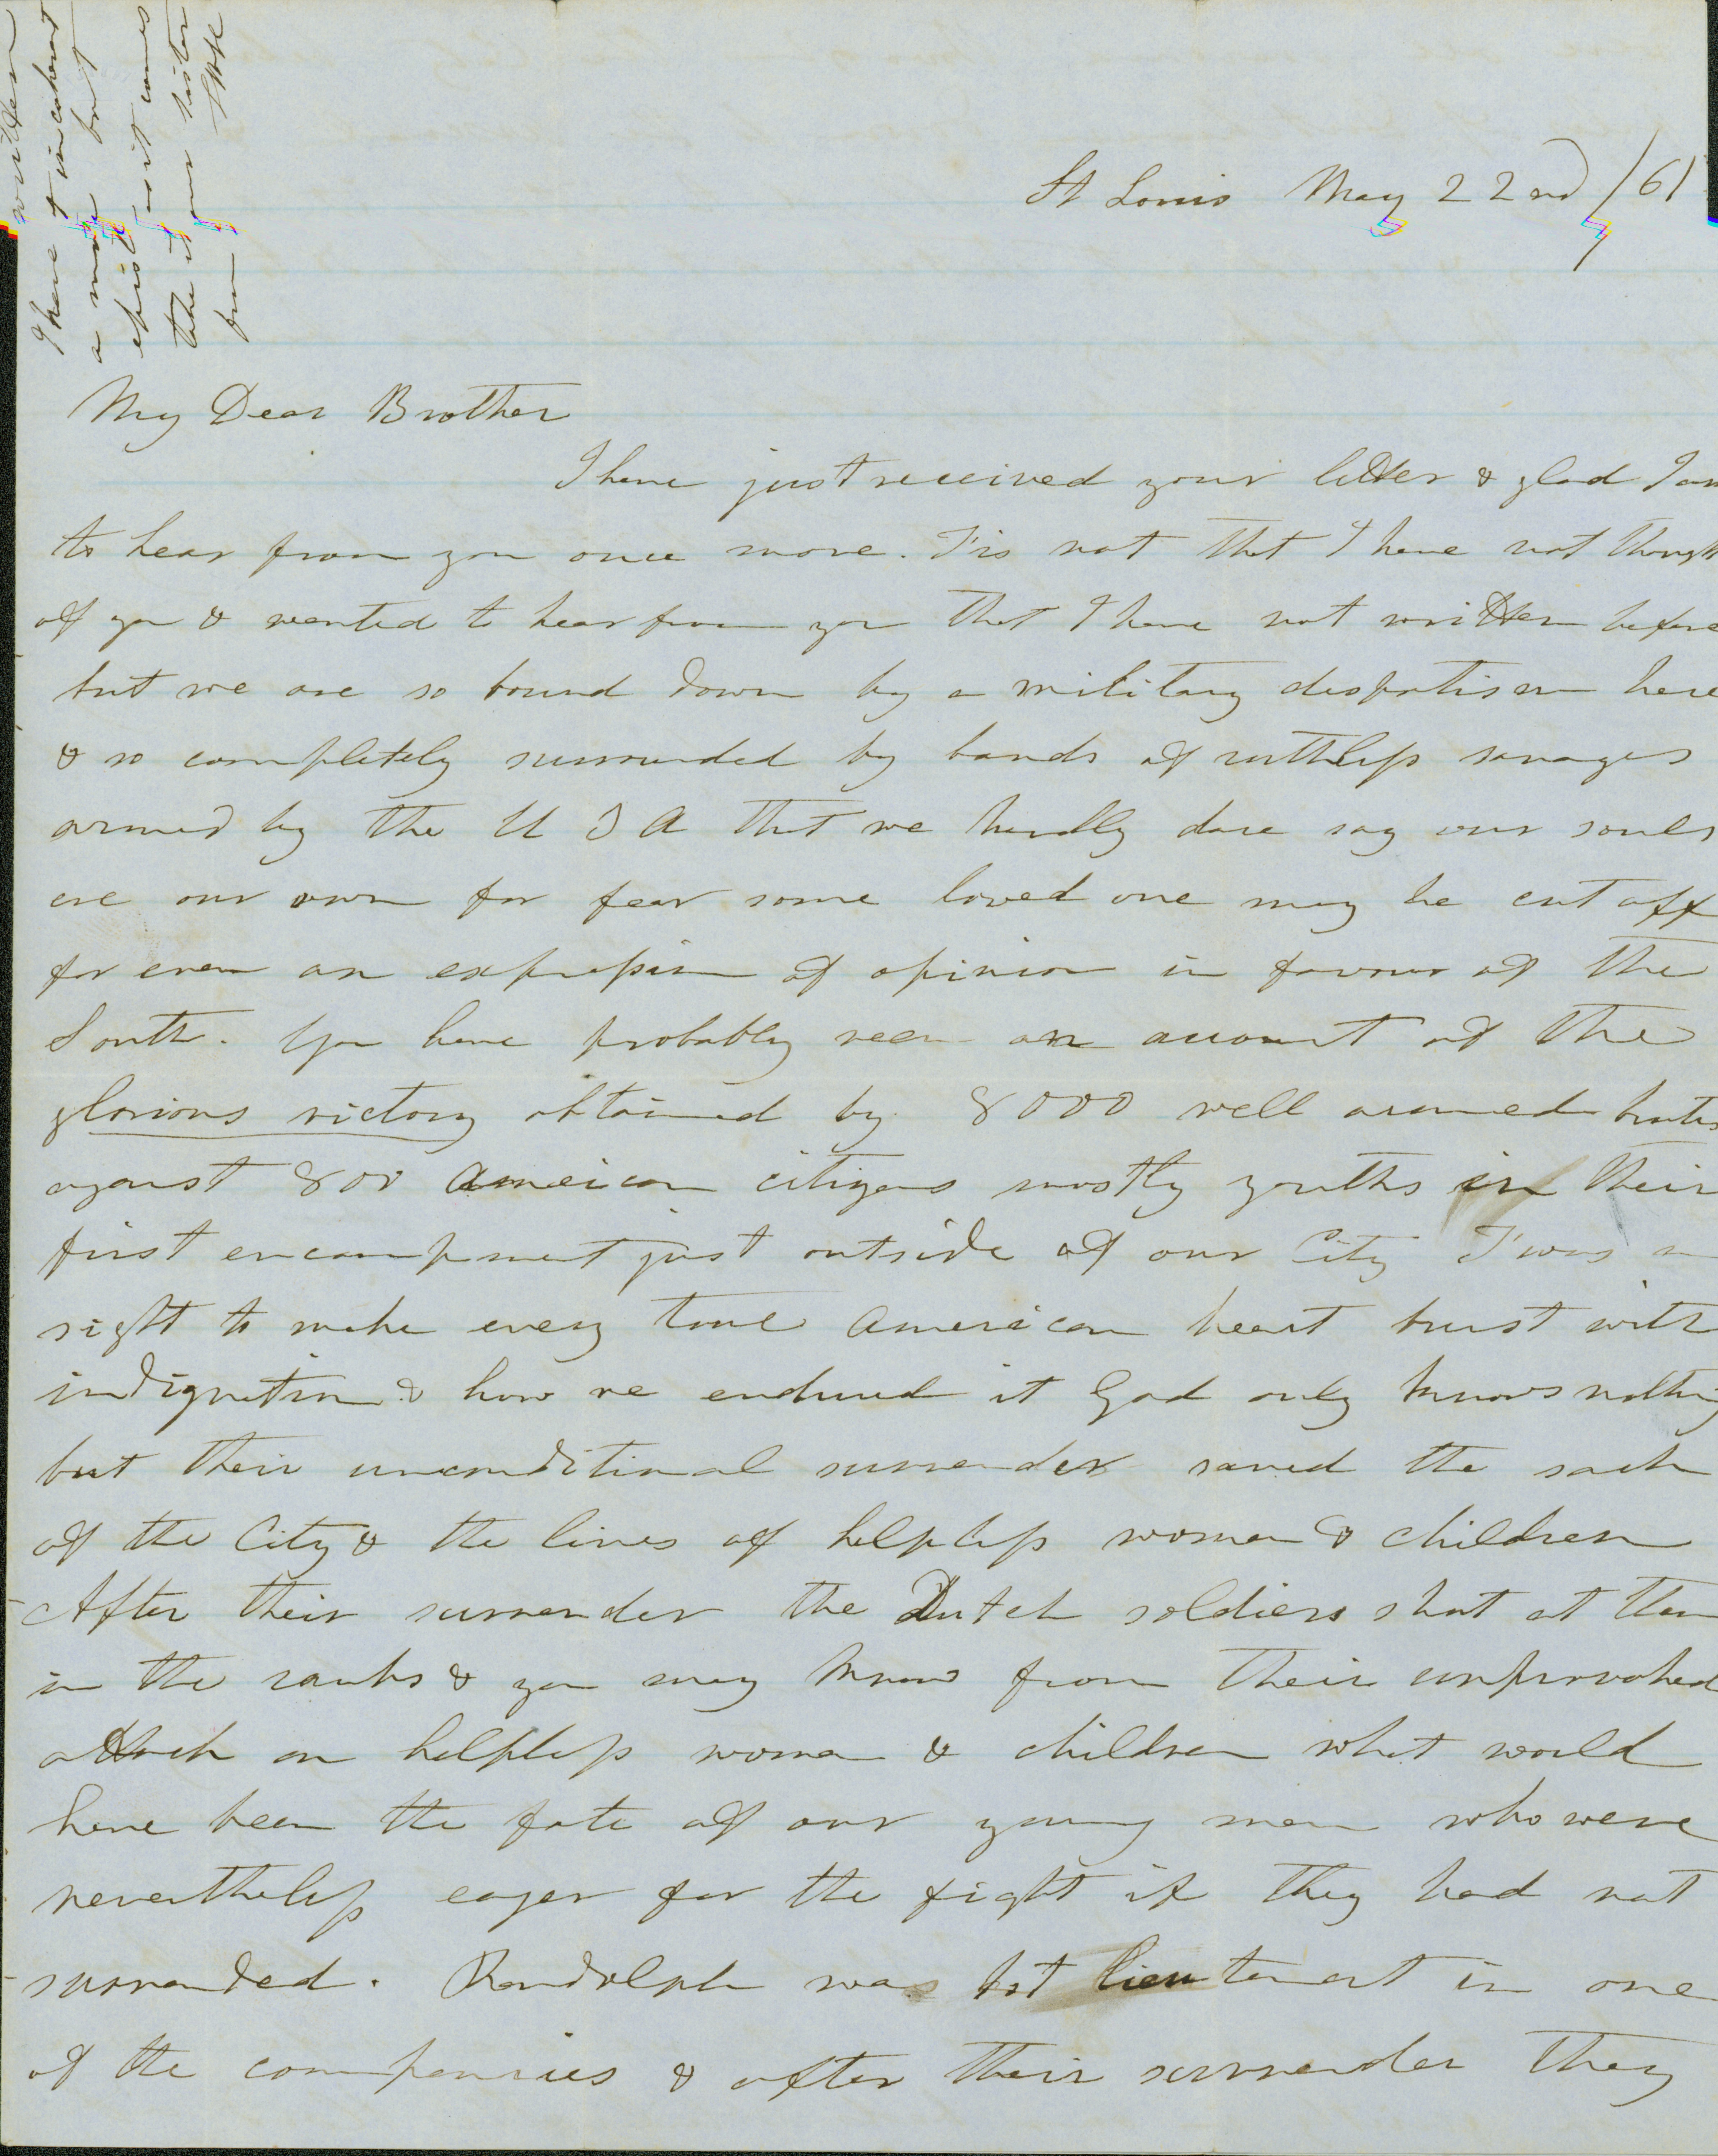 St Louis May 22nd /61
My Dear Brother
I have just received your letter & glad I am
to hear from you once more. T'is not that I have not thought
of you & wanted to hear from you that I have not written before
but we are so bound down by a military despotism here
& so completely surrounded by bands of ruthless savages
armed by the U S A that we hardly dare say our souls
are our own for fear some loved one may be cut off
for even an expression of opinion in favour of the
South. You have probably seen an account of the
glorious victory obtained by 8000 well armed brutes
against 800 American citizens mostly youths in their
first encampment just outside of our City T'was a
sight to make every true American heart burst with
indignation & how we endured it God only knows nothing
but their unconditional surrender saved the sack
of the City & the lives of helpless women & children
After their surrender the Dutch soldiers shot at them
in the ranks & you may know from their unprovoked
attack on helpless women & children what would
have been the fate of our young men who were
nevertheless eager for the fight if they had not
surrended. Randolph was 1st lieutenant in one
of the companies & after their surrender they
written
I have t incoherent
a most but
epistle as it comes
take it your sister
from